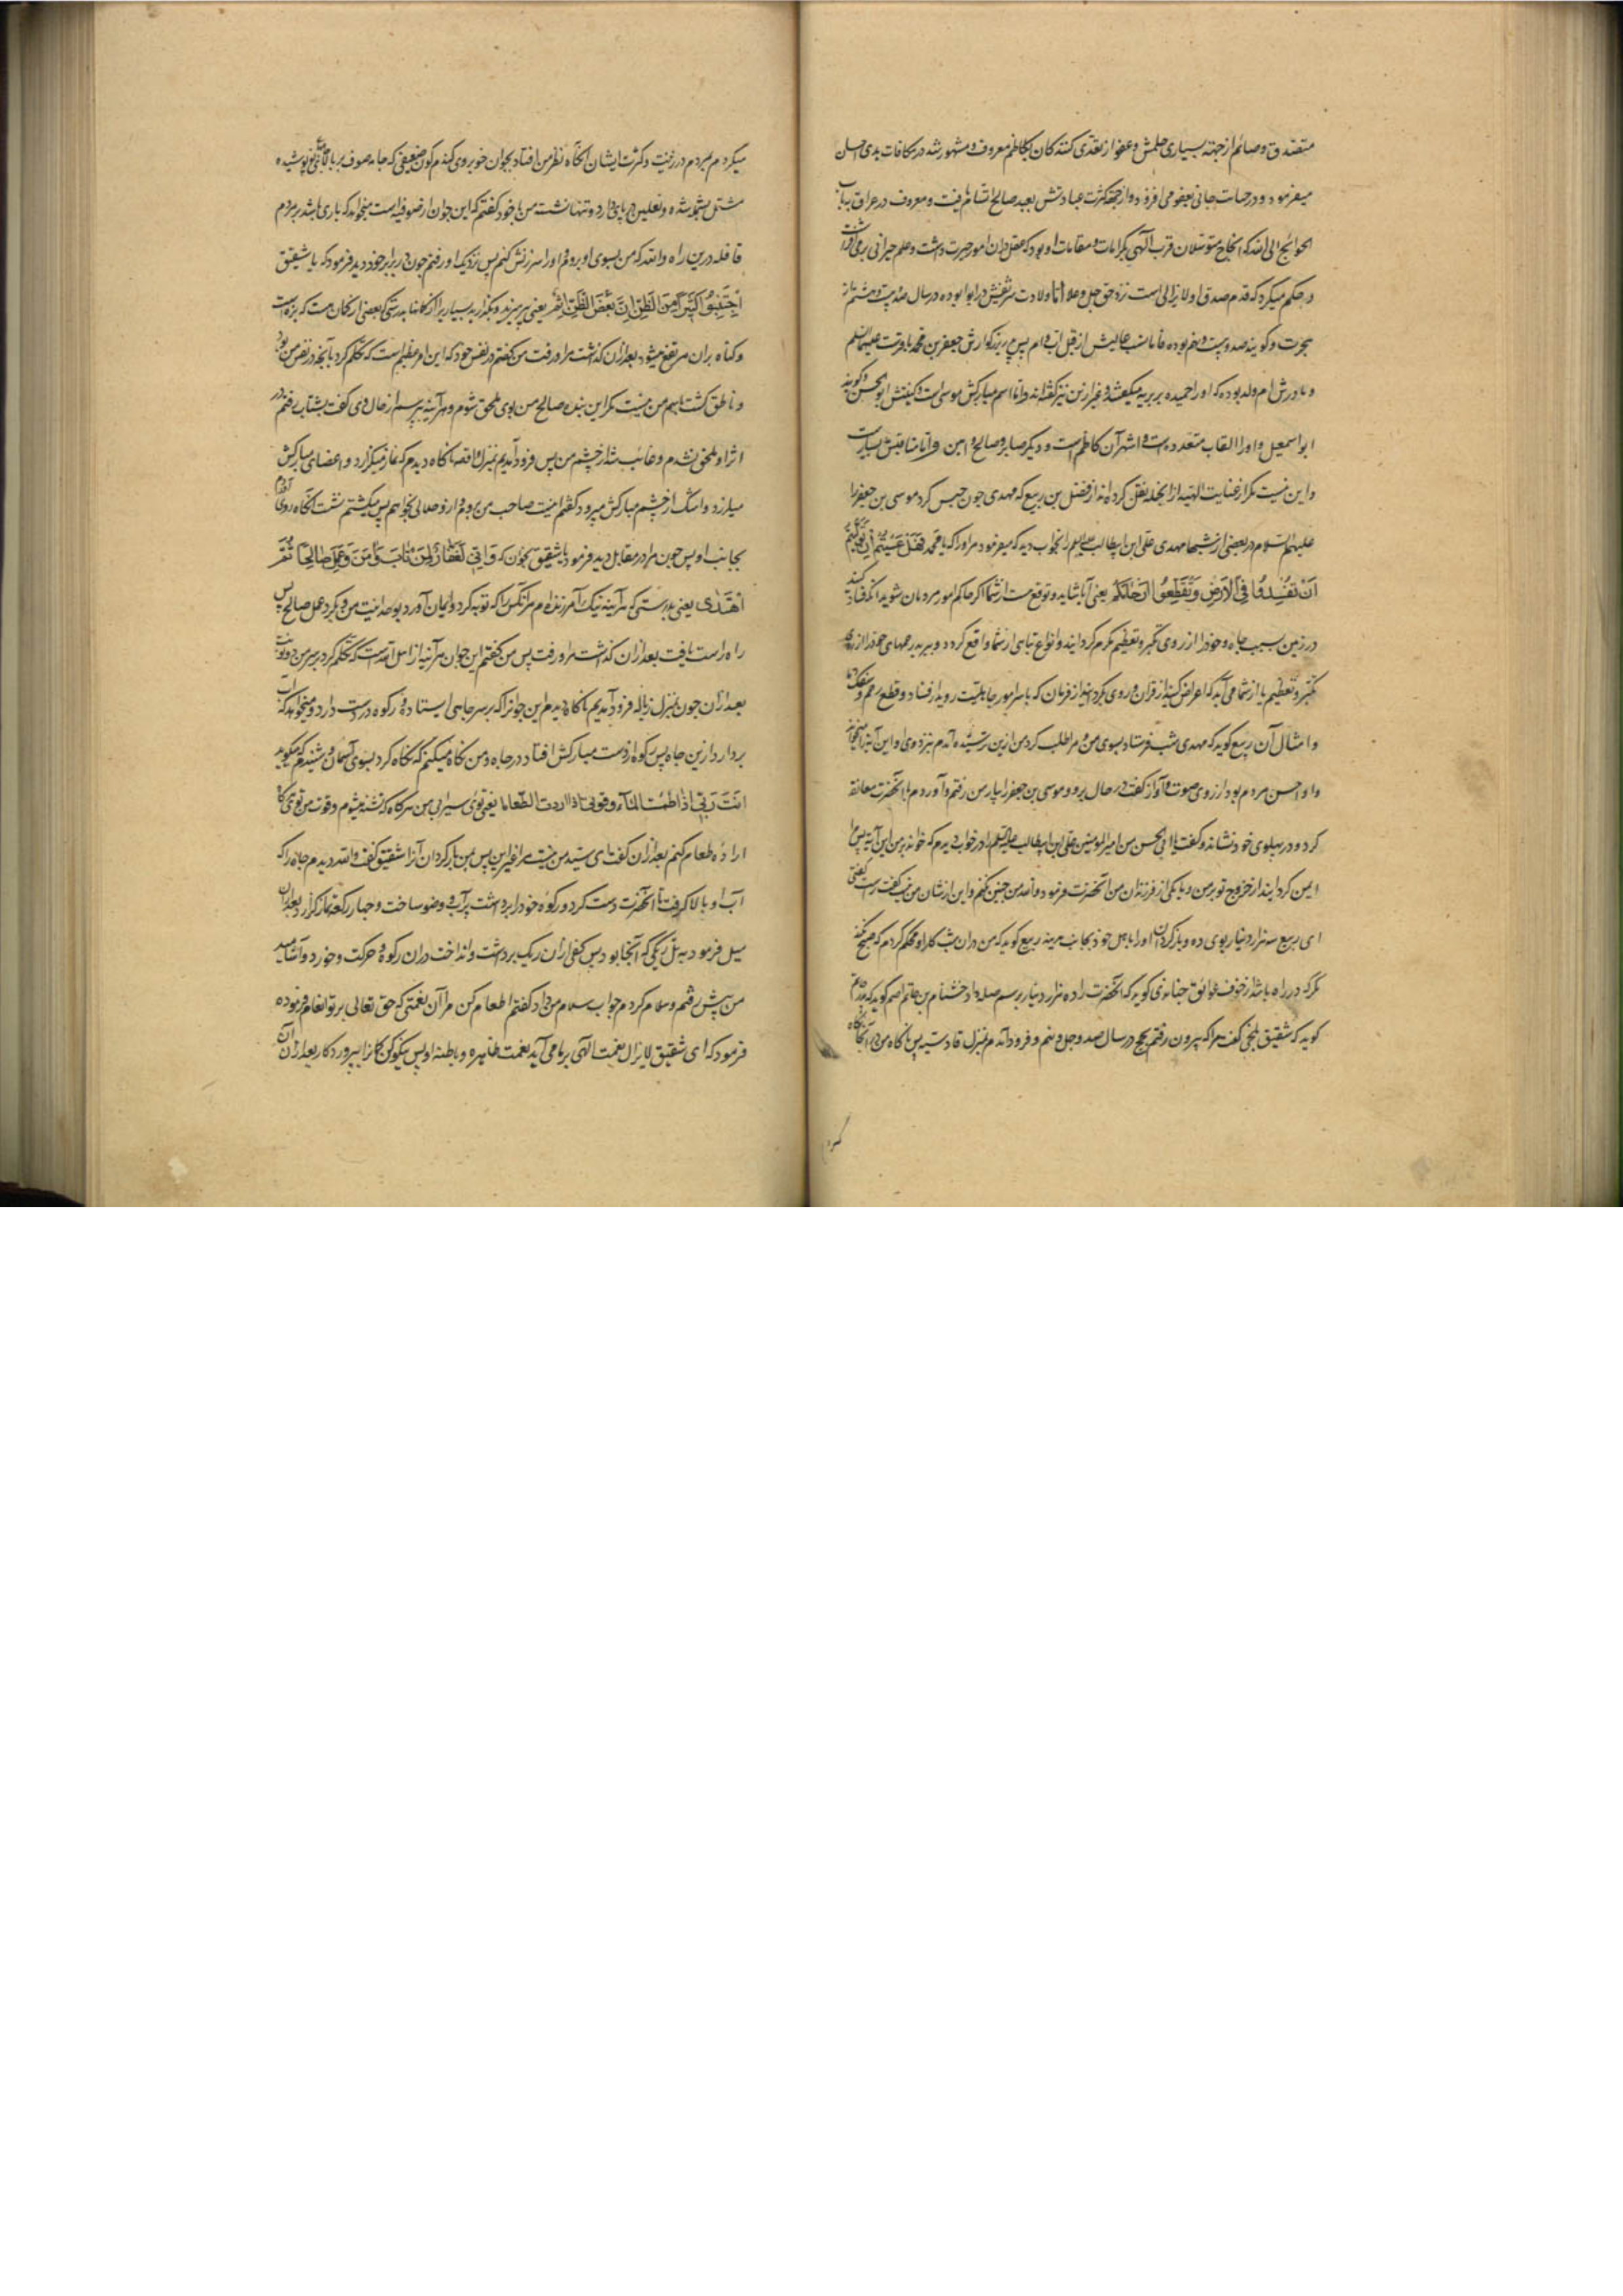 متصدق و صائم از جهته بسیاری حلمش و عفو از تعدی کنندکان بکاظم معروف و مشهور شد در مکافات بدی احسان
میفرمود و در جنایات جانی بعفو می افزود و از جهة کثرت عبادتش بعبد صالح اتسام یافت و معروف در عراق بباب
الحوائج الی الله که انجاح متوسلان قرب الهی بکرامات و مقامات او بود که عقل در ان امور حیرت داشت و علم حیرانی برمی افراشت
و حکم میکرد که قدم صدق او لا یزالی است نزد حق جل و علا اما ولادت شریفش در ابوا بوده در سال صد و بیست و هشتم از
هجرت و کویند صد و بیست و نهم بوده و اما نسب عالیش از قبل اب و ام پس پدر بزرکوارش جعفر بن محمد باقرست علیهما السلم
و مادرش ام ولد بوده که او را حمیده بربریه میکفتند و غیر ازین نیز کفته اند و اما اسم مبارکش موسی است و کنیتش ابو الحسن و کویند
ابو اسمعیل و او را القاب متعدده است و اشهر آن کاظم است و دیکر صابر و صالح و امین و اما مناقبش بسیارست
و این نیست مکر از عنایت الهیه از انجمله نقل کرده اند از فضل بن ربیع که مهدی چون حبس کرد موسی بن جعفر را
علیهم السلام در بعضی از شبها مهدی علی ابن ابیطالب علیه السلم را بخواب دید که میفرمود مر او را که یا محمد فَهَلْ عَسَیْتُمْ اِنْ تَوَلَّیْتُمْ
اَنْ تُفْسِدُوا فِی الْاَرْضِ وَ تُقَطِّعُوا اَرْحَامَکُمْ یعنی آیا شاید و توقع هست از شما اکر حاکم امور مردمان شوید انکه فساد کنید
در زمین بسبب جاه و خود را از روی تکبر و تعظیم مکرم کردانید و انواع تباهی از شما واقع کردد و ببرید رحمهای خود را از روی
تکبر و تعظیم یا از شما می آید که اعراض کنید از قران و روی کردانید از فرمان که باسر امور جاهلیت روید از فساد و قطع رحم و سفک دما
و امثال آن ربیع کوید که مهدی شب فرستاد بسوی من و مرا طلب کرد من ازین ترسیده آمدم نزد وی او این آیة را میخواند
و او احسن مردم بود از روی صوت و آواز کفت در حال برو و موسی بن جعفر را بیار من رفتم و آوردم با آنحضرت معانقه
کرد و در پهلوی خود نشاند و کفت یا ابی الحسن من امیر المومنین علی ابن ابیطالب علیه السلم را در خواب دیدم که خواند بر من این آیة پس مرا
ایمن کردانید از خروج تو بر من و یا یکی از فرزندان من آنحضرت فرمود و الله من چنین نکنم و این از شان من نیست کفت راست کفتی
ای ربیع سه هزار دینار بوی ده و باز کردان او را باهل خود بجانب مدینه ربیع کوید که من در ان شب کار او محکم کردم که صبح نکند
مکر که در راه باشد از خوف عوائق جنابذی کوید که آنحضرت را ده هزار دینار برسم صله داد خشنام بن حاتم اصم کوید که پدرم
کوید که شقیق بلخی کفت مرا که بیرون رفتم بحج در سال صد و چهل و نهم و فرود آمدم بمنزل قادسیه پس ناکاه من در آنجا نکاه
میکردم بمردم در زینت و کثرت ایشان انکاه نظر من افتاد بجوان خوبروی کندم کون ضعیفی که جامه صوف بر بالای جامه خود پوشیده
مشتمل بشمله شده و نعلین در پای دارد و تنها نشسته من با خود کفتم که این جوان از صوفیه است میخواهد که باری باشد بر مردم
قافله درین راه و الله که من بسوی او بروم و او را سرزنش کنم پس نزدیک او رفتم چون مرا برابر خود دید فرمود که یا شقیق
اِجْتَنِبُوا کَثِیراً مِنَ الظَّنِّ اِنَّ بَعْضَ الظَّنِّ اِثْمٌ یعنی بپرهیزید و بکذارید بسیاری را از کمانها بدرستی که بعضی از کمان هست که بزه است
و کناه بران مترتفع میشود بعد از ان کذاشت مرا و رفت من کفتم در نفس خود که این امر عظیم است که تکلم کرد بآنچه در نفس من بود
و ناطق کشت باسم من نیست مکر این بنده صالح من بوی ملحق شوم و هر آینه بپرسم از حال وی کفت بشتاب رفتم در
اثر او ملحق نشدم و غائب شد از چشم من پس فرود آمدیم بمنزل واقصه ناکاه دیدم که نماز میکزارد و اعضای مبارکش
میلرزد و اشک از چشم مبارکش میرود کفتم اینست صاحب من بروم و از وحلالی بخواهم پس میکشتم نشست انکاه روی آوردم
بجانب او پس چون مرا در مقابل دید فرمود یا شقیق بخوان که وَ اِنِّی لَغَفَّارٌ لِمَنْ تَابَ وَ آمَنَ وَ عَمِلَ صَالِحاً ثُمَّ
اهْتَدَی یعنی بدرستی که هر آینه نیک آمرزنده ام مر آنکس را که توبه کرد و ایمان آورد بوحدانیت من و بکرد عمل صالح پس
راه راست یافت بعد از ان کذاشت مرا و رفت پس من کفتم این جوان هر آینه از ابدال است که تکلم کرد بر سر من دو نوبت
بعد از ان چون بمنزل زباله فرود آمدیم ناکاه دیدم این جوانرا که بر سر چاهی ایستاده و رکوه در دست دارد و میخواهد که آب
بردارد ازین چاه پس رکوه از دست مبارکش افتاد در چاه و من نکاه میکنم که نکاه کرد بسوی آسمان و شنیدم که میکوید
اَنْتَ رَبِّی اِذَا ظَمِئْتُ اِلَی الْمَآءِ وَ قُوتِی اِذَا اَرَدْتُ الطَّعَامَا یعنی توئی سیرابی من هرکاه که تشنه میشوم و قوت من توئی کاه
اراده طعام کنم بعد از ان کفت ای سید من نیست مرا غیر این پس بمن بازکردان آنرا شقیق کفت و الله دیدم چاه را که
آب او بالا کرفت تا آنحضرت دست کرد و رکوه خود را برداشت پر آب و وضو ساخت و چهار رکعة نماز کزارد بعد از ان
میل فرمود به تل ریکی که آنجا بود پس کفی از ان ریک برداشت و انداخت در ان رکوه و حرکت و خورد و آشامید
من پیش رفتم و سلام کردم جواب سلام من داد کفتم اطعام کن مرا آن نعمتی که حق تعالی بر تو انعام فرموده
فرمود که ای شقیق لا یزال نعمت الهی بر ما می آید نعمت ظاهره و باطنه او پس نیکو کن کمانرا بپروردکار بعد از ان آن